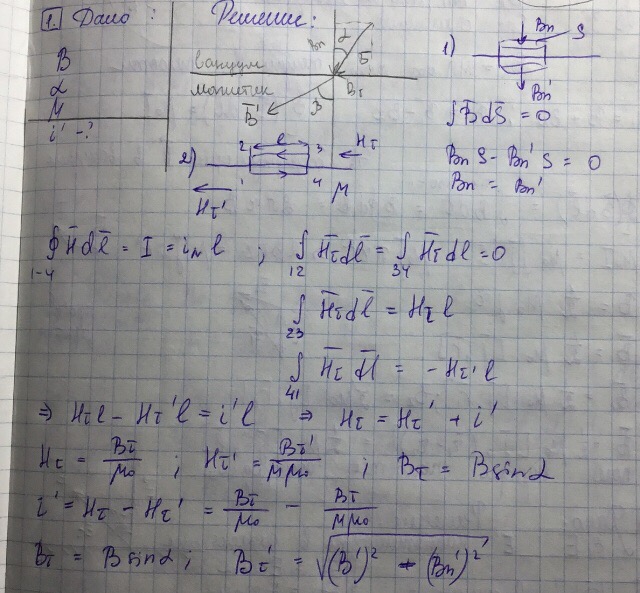 1. Дано: Решение:
B
α
μ
i' - ?
вакуум
магнетик
Bn α B̄
Bτ
B̄' β
1) Bn S
Bn'
∫B̄dS̄ = 0
BnS - Bn'S = 0
Bn = Bn'
2) 2 l 3 Hτ
1 4 μ
Hτ'
∮H̄dl̄ = I = iₙl ; ∫H̄τdl̄ = ∫H̄τdl = 0
1-4 12 34
∫H̄τdl̄ = Hτl
23
∫H̄τdl̄ = -Hτ'l
41
⇒ Hτl - Hτ'l = i'l ⇒ Hτ = Hτ' + i'
Hτ = Bτ/μ₀ ; Hτ' = Bτ'/μμ₀ ; Bτ = Bsinα
i' = Hτ - Hτ' = Bτ/μ₀ - Bτ/μμ₀
Bτ = Bsinα ; Bτ' = √((B')² - (Bn')²)